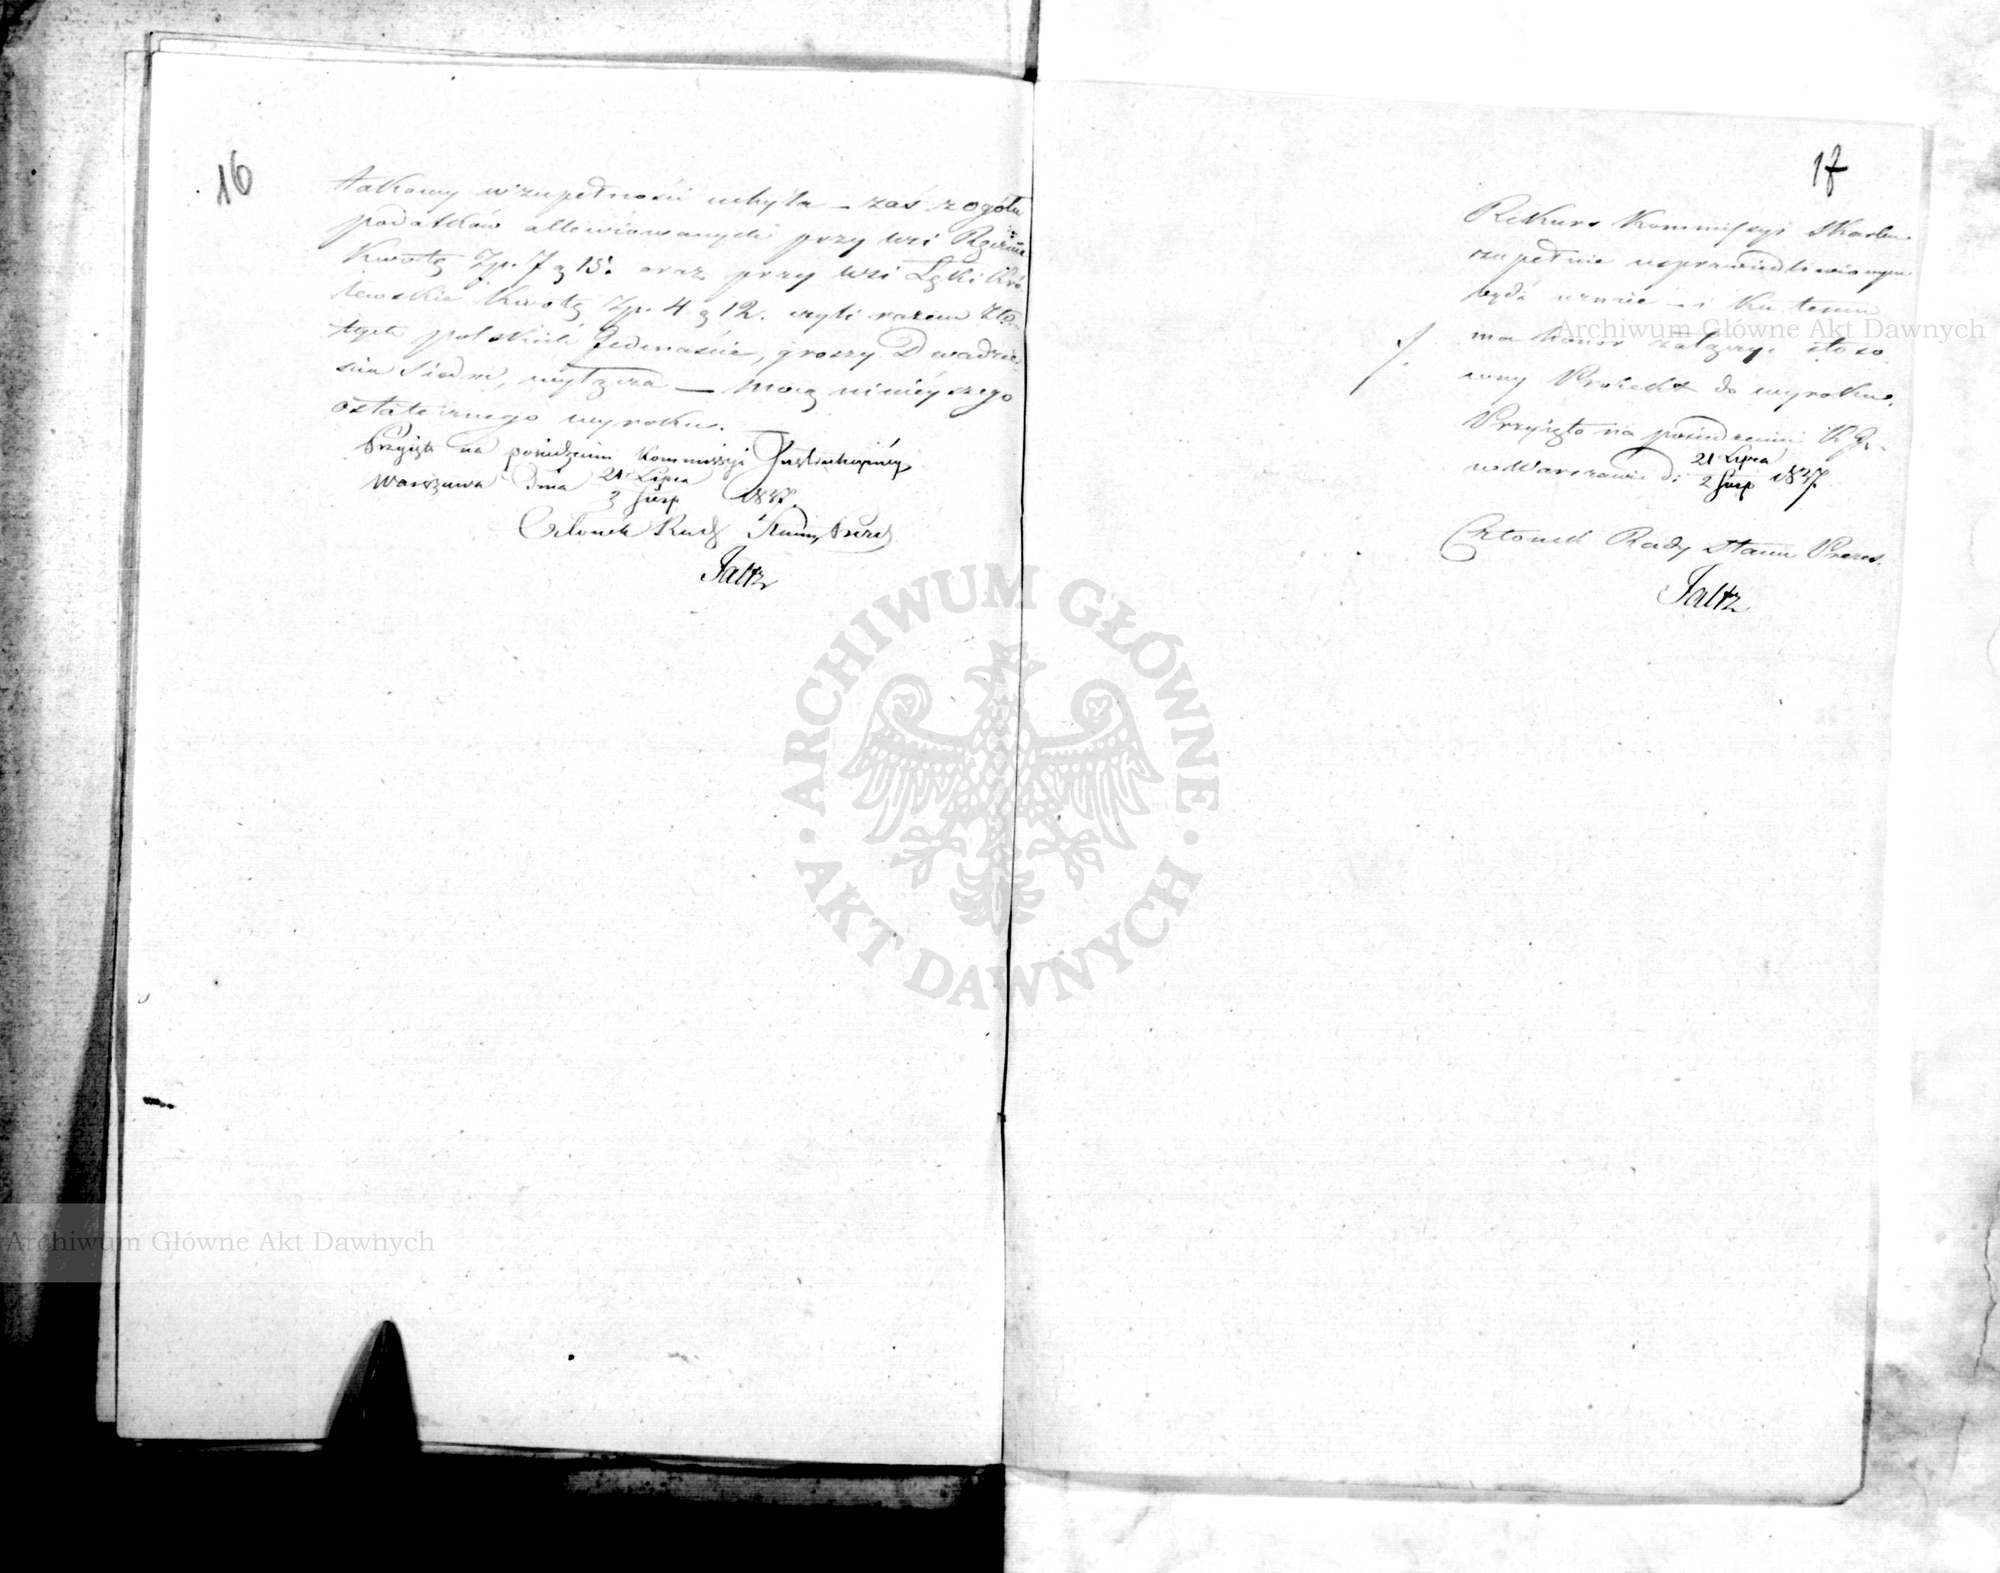 16
takowy w zupełności uchyla – zaś z ogółu
podatków allewiowanych przy wsi
Kwotę Zp. 7 g 15. oraz przy wsi Łęki Kró
lewskie Kwotę Zp. 4 g 12. czyli razem Zło-
tych polskich Jedenaście, groszy Dwadzie-
ścia Siedm, wyłącza – mocą ninieyszego
ostatecznego wyroku.
Przyięto na posiedzeniu Kommissyi
Warszawa Dnia 21 Lipca
2 Sierp 1837.
Członek Rady Stanu, Prezes
17
Rekurs Kommissyi Skarbu
zupełnie usprawiedliwionym
bydź uznaie – i Ku temu
ma honor załączyć stoso
wny Proiekt do wyroku.
Przyięto na posiedzeniu
w Warszawie d: 21 Lipca
2 Sierp 1837.
Członek Rady Stanu Prezes.
ARCHIWUM GŁÓWNE
AKT DAWNYCH
Archiwum Główne Akt Dawnych
Archiwum Główne Akt Dawnych